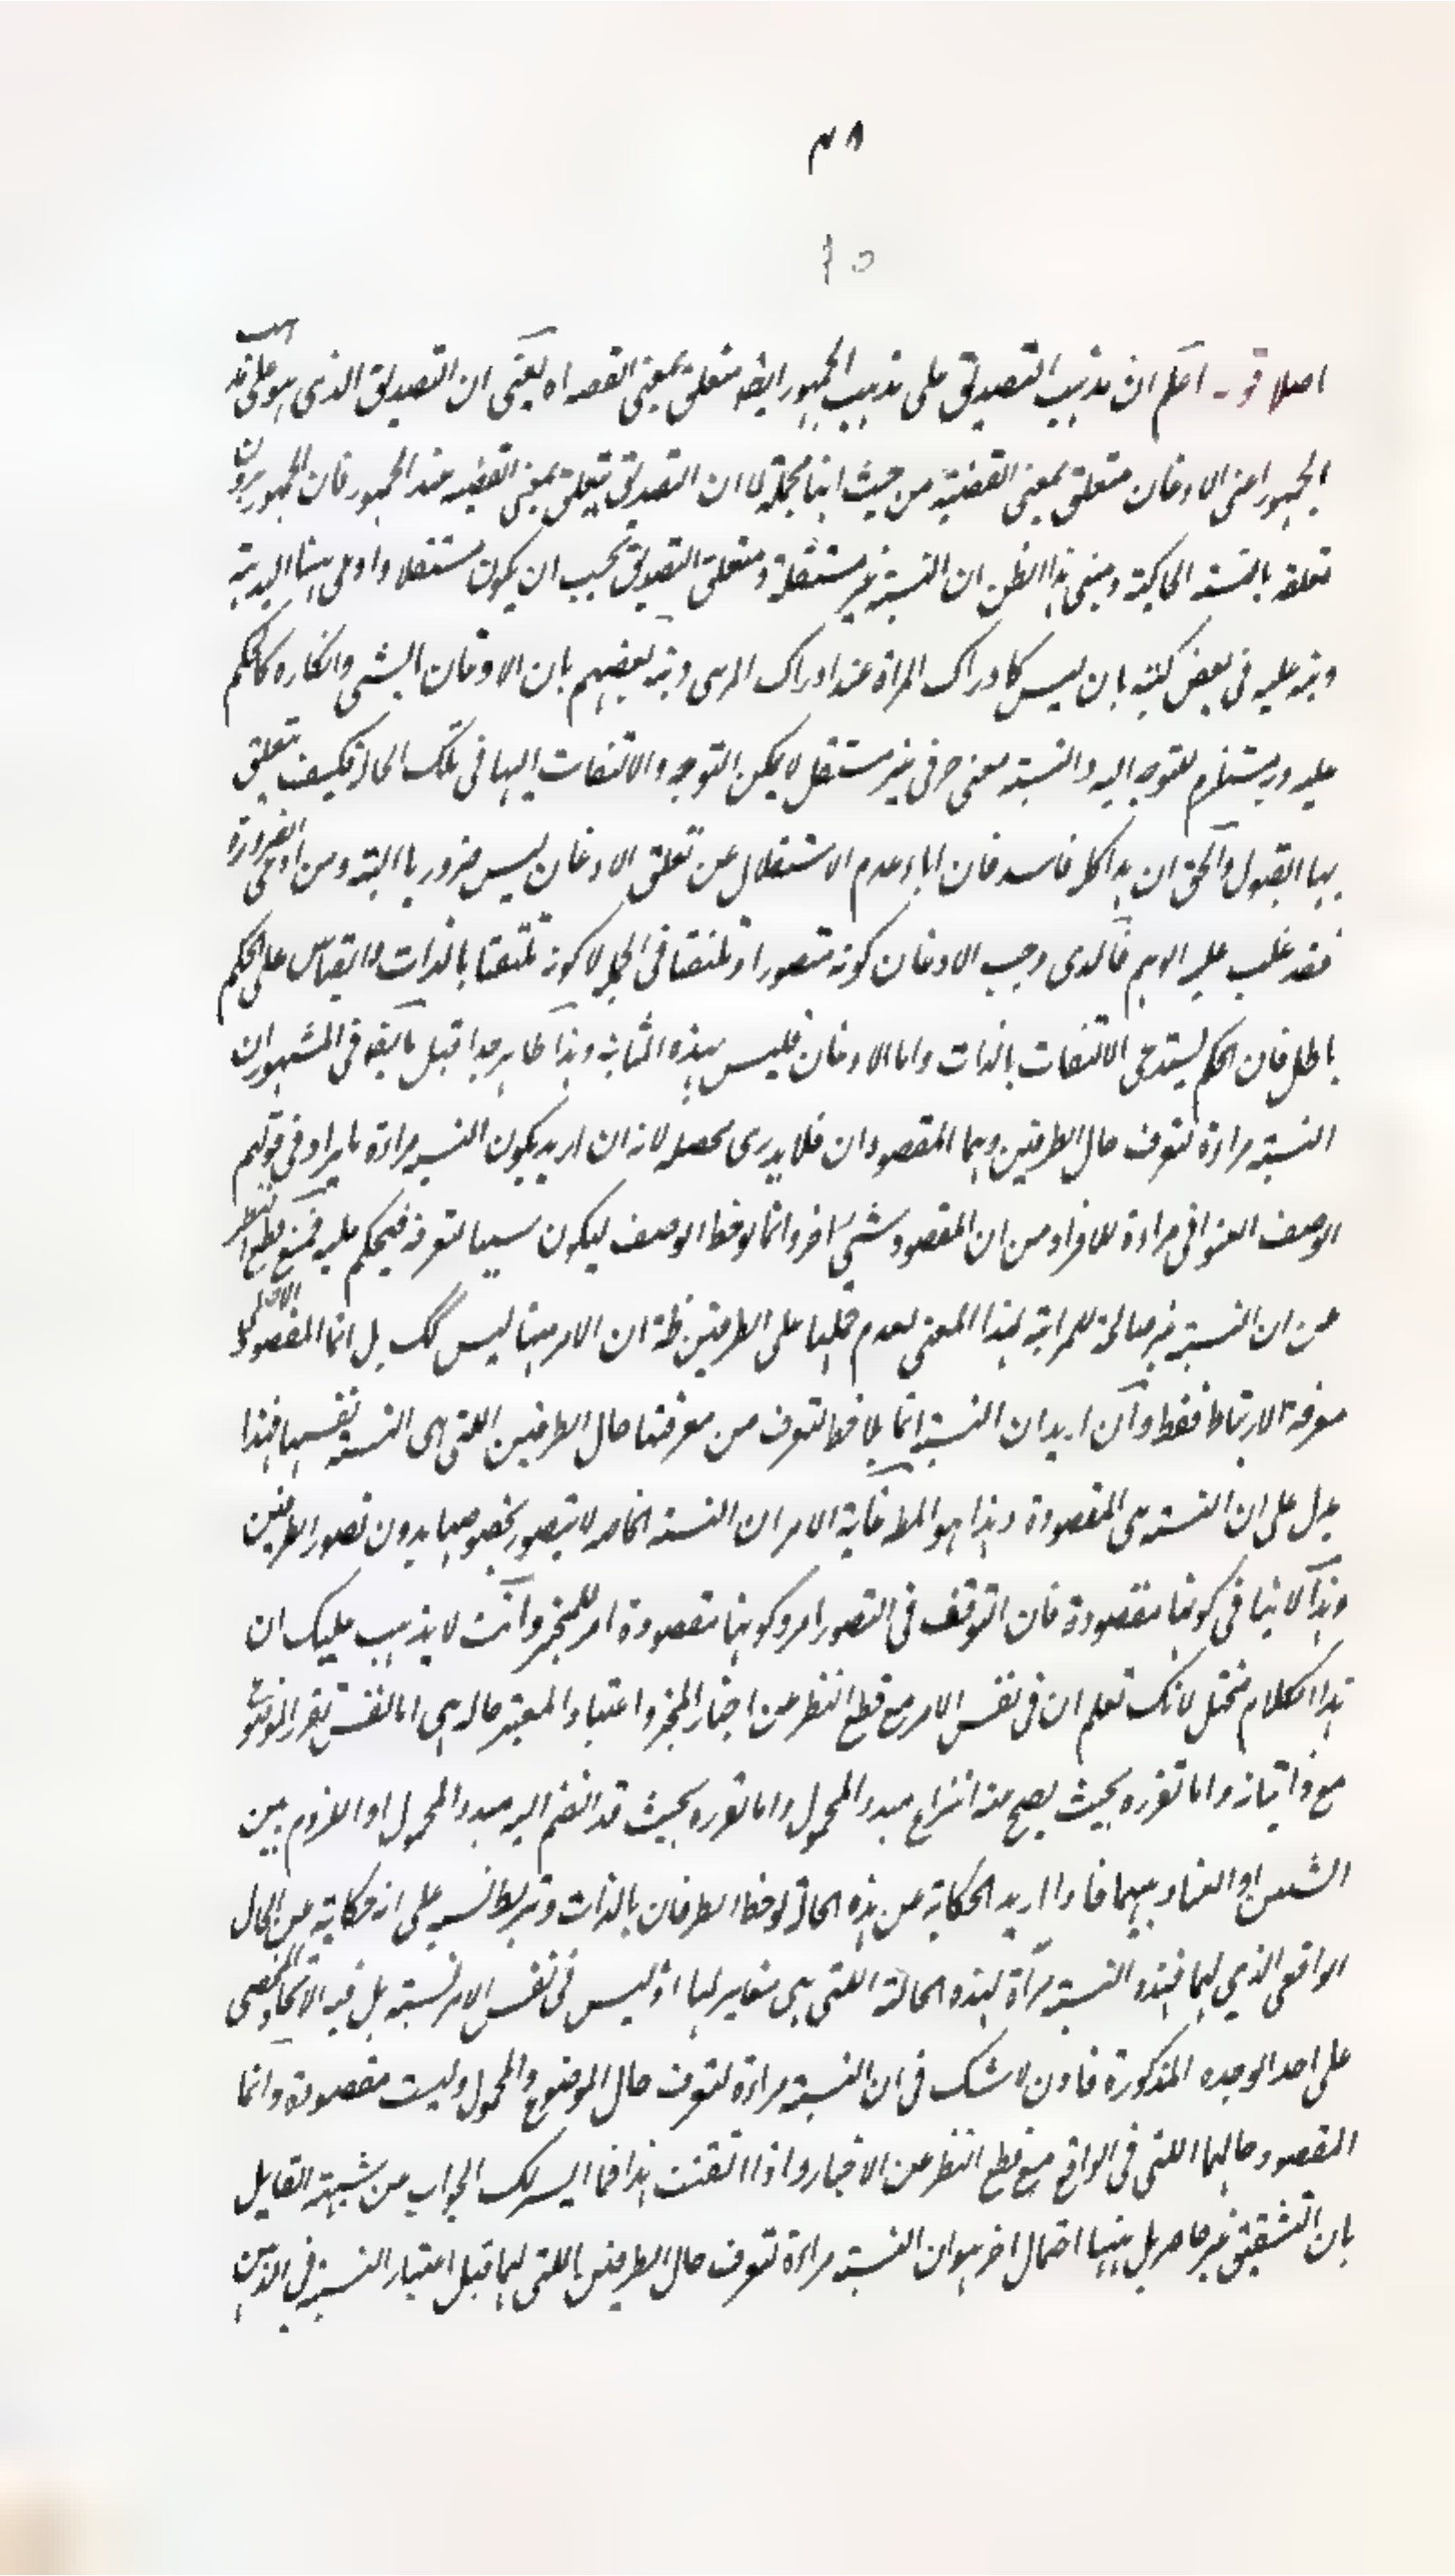 ٤٨
١٥
اصلا قوله اعلم ان مذهب التصديق على مذهب الجمهور ايضا متعلق بمعنى القضية اه يعنى ان التصديق الذى هو على مذهب
الجمهور اعنى الاذعان متعلق بمعنى القضية من حيث انها مجملة لا ان التصديق يتعلق بمعنى القضية عند الجمهور فان الجمهور يرون
تعلقه بالنسبة الحاكية ومبنى هذا الظن ان النسبة غير مستقلة ومتعلق التصديق يجب ان يكون مستقلا وادعى ههنا البديهة
ونبه عليه فى بعض كتبه بان ليس كادراك المراة عند ادراك المرئى ونبه بعضهم بان الاذعان الشئ وانكاره كالحكم
عليه وبه يستلزم للتوجه اليه والنسبة معنى حرفى غير مستقل لا يمكن التوجه والالتفات اليها فى تلك الحال فكيف يتعلق
بها القبول والحق ان هذا كله فاسد فان اباء عدم الاستقلال عن تعلق الاذعان ليس ضروريا البتة ومن ادعى الضرورة
فقد غلب عليه الوهم فالذى وجب الاذعان كونه متصورا وملتفتا فى الجملة لا كونه ملتفتا بالذات والقياس على الحكم
باطل فان الحكم يستدعى الالتفات بالذات واما الاذعان فليس بهذه المثابة وهذا ظاهر جدا قيل ما يقع فى المشهور ان
النسبة مراءة لتعرف حال الطرفين وهما المقصودان فلا يدرى محصله لانه ان اريد بكون النسبة مراءة ما يراد فى قولهم
الوصف العنوانى مراءة للافراد من ان المقصود شئ اخر وانما لوحظ الوصف ليكون سببا لتعرفه فيحكم عليه فمع قطع النظر
عن ان النسبة غير صالحة للمراتية لهذا المعنى لعدم حملها على الطرفين نظرة ان الامر ههنا ليس كك بل انما المقصود الاصلى
معرفة الارتباط فقط وان اريد ان النسبة انما يلاحظ لتعرف من معرفتها حال الطرفين اللتى هى النسبة نفسها فهذا
يدل على ان النسبة هى المقصودة وهذا هو المط غاية الامر ان النسبة الخاصة لا يتصور بخصوصها بدون تصور الطرفين
وهذا لا ينافى كونها مقصودة فان التوقف فى التصور امر وكونها مقصودة امر للمخبر وانت لا يذهب عليك ان
هذا الكلام مختل لانك تعلم ان فى نفس الامر مع قطع النظر عن اخبار المخبر واعتبار المعتبر حاله هى اما نفس تقرر الموضوع
مع ذاتياته واما تقرره بحيث يصح منه انتزاع مبدء المحمول واما تقرره بحيث قد انضم اليه مبدء المحمول او اللزوم بين
الشيئين او العناد بينهما فاذا اريد الحكاية عن هذه الحالة لوحظ الطرفان بالذات وتربط النسبة على انه حكاية عن الحال
الواقعى الذي لهما فهذه النسبة مرآة لهذه الحالة اللتى هى مغاير لها اذ ليس فى نفس الامر نسبة بل فيه الاتحاد المحض
على احد الوجوه المذكورة فاذن لا شك فى ان النسبة مراءة لتعرف حال الموضوع والمحمول وليست مقصودة وانما
المقصود حالهما اللتى فى الواقع مع قطع النظر عن الاخبار واذا اتقنت هذا فما ايسر لك الجواب عن شبهة القايل
بان التشقيق غير حاصر بل ههنا احتمال اخر هو ان النسبة مراءة لتعرف حال الطرفين باللتى لهما قبل اعتبار النسبة فى الذهن